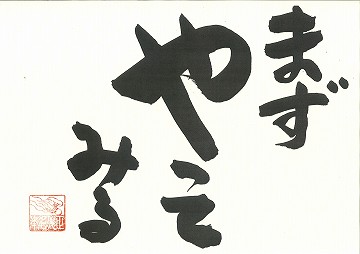 まず
やって
みる